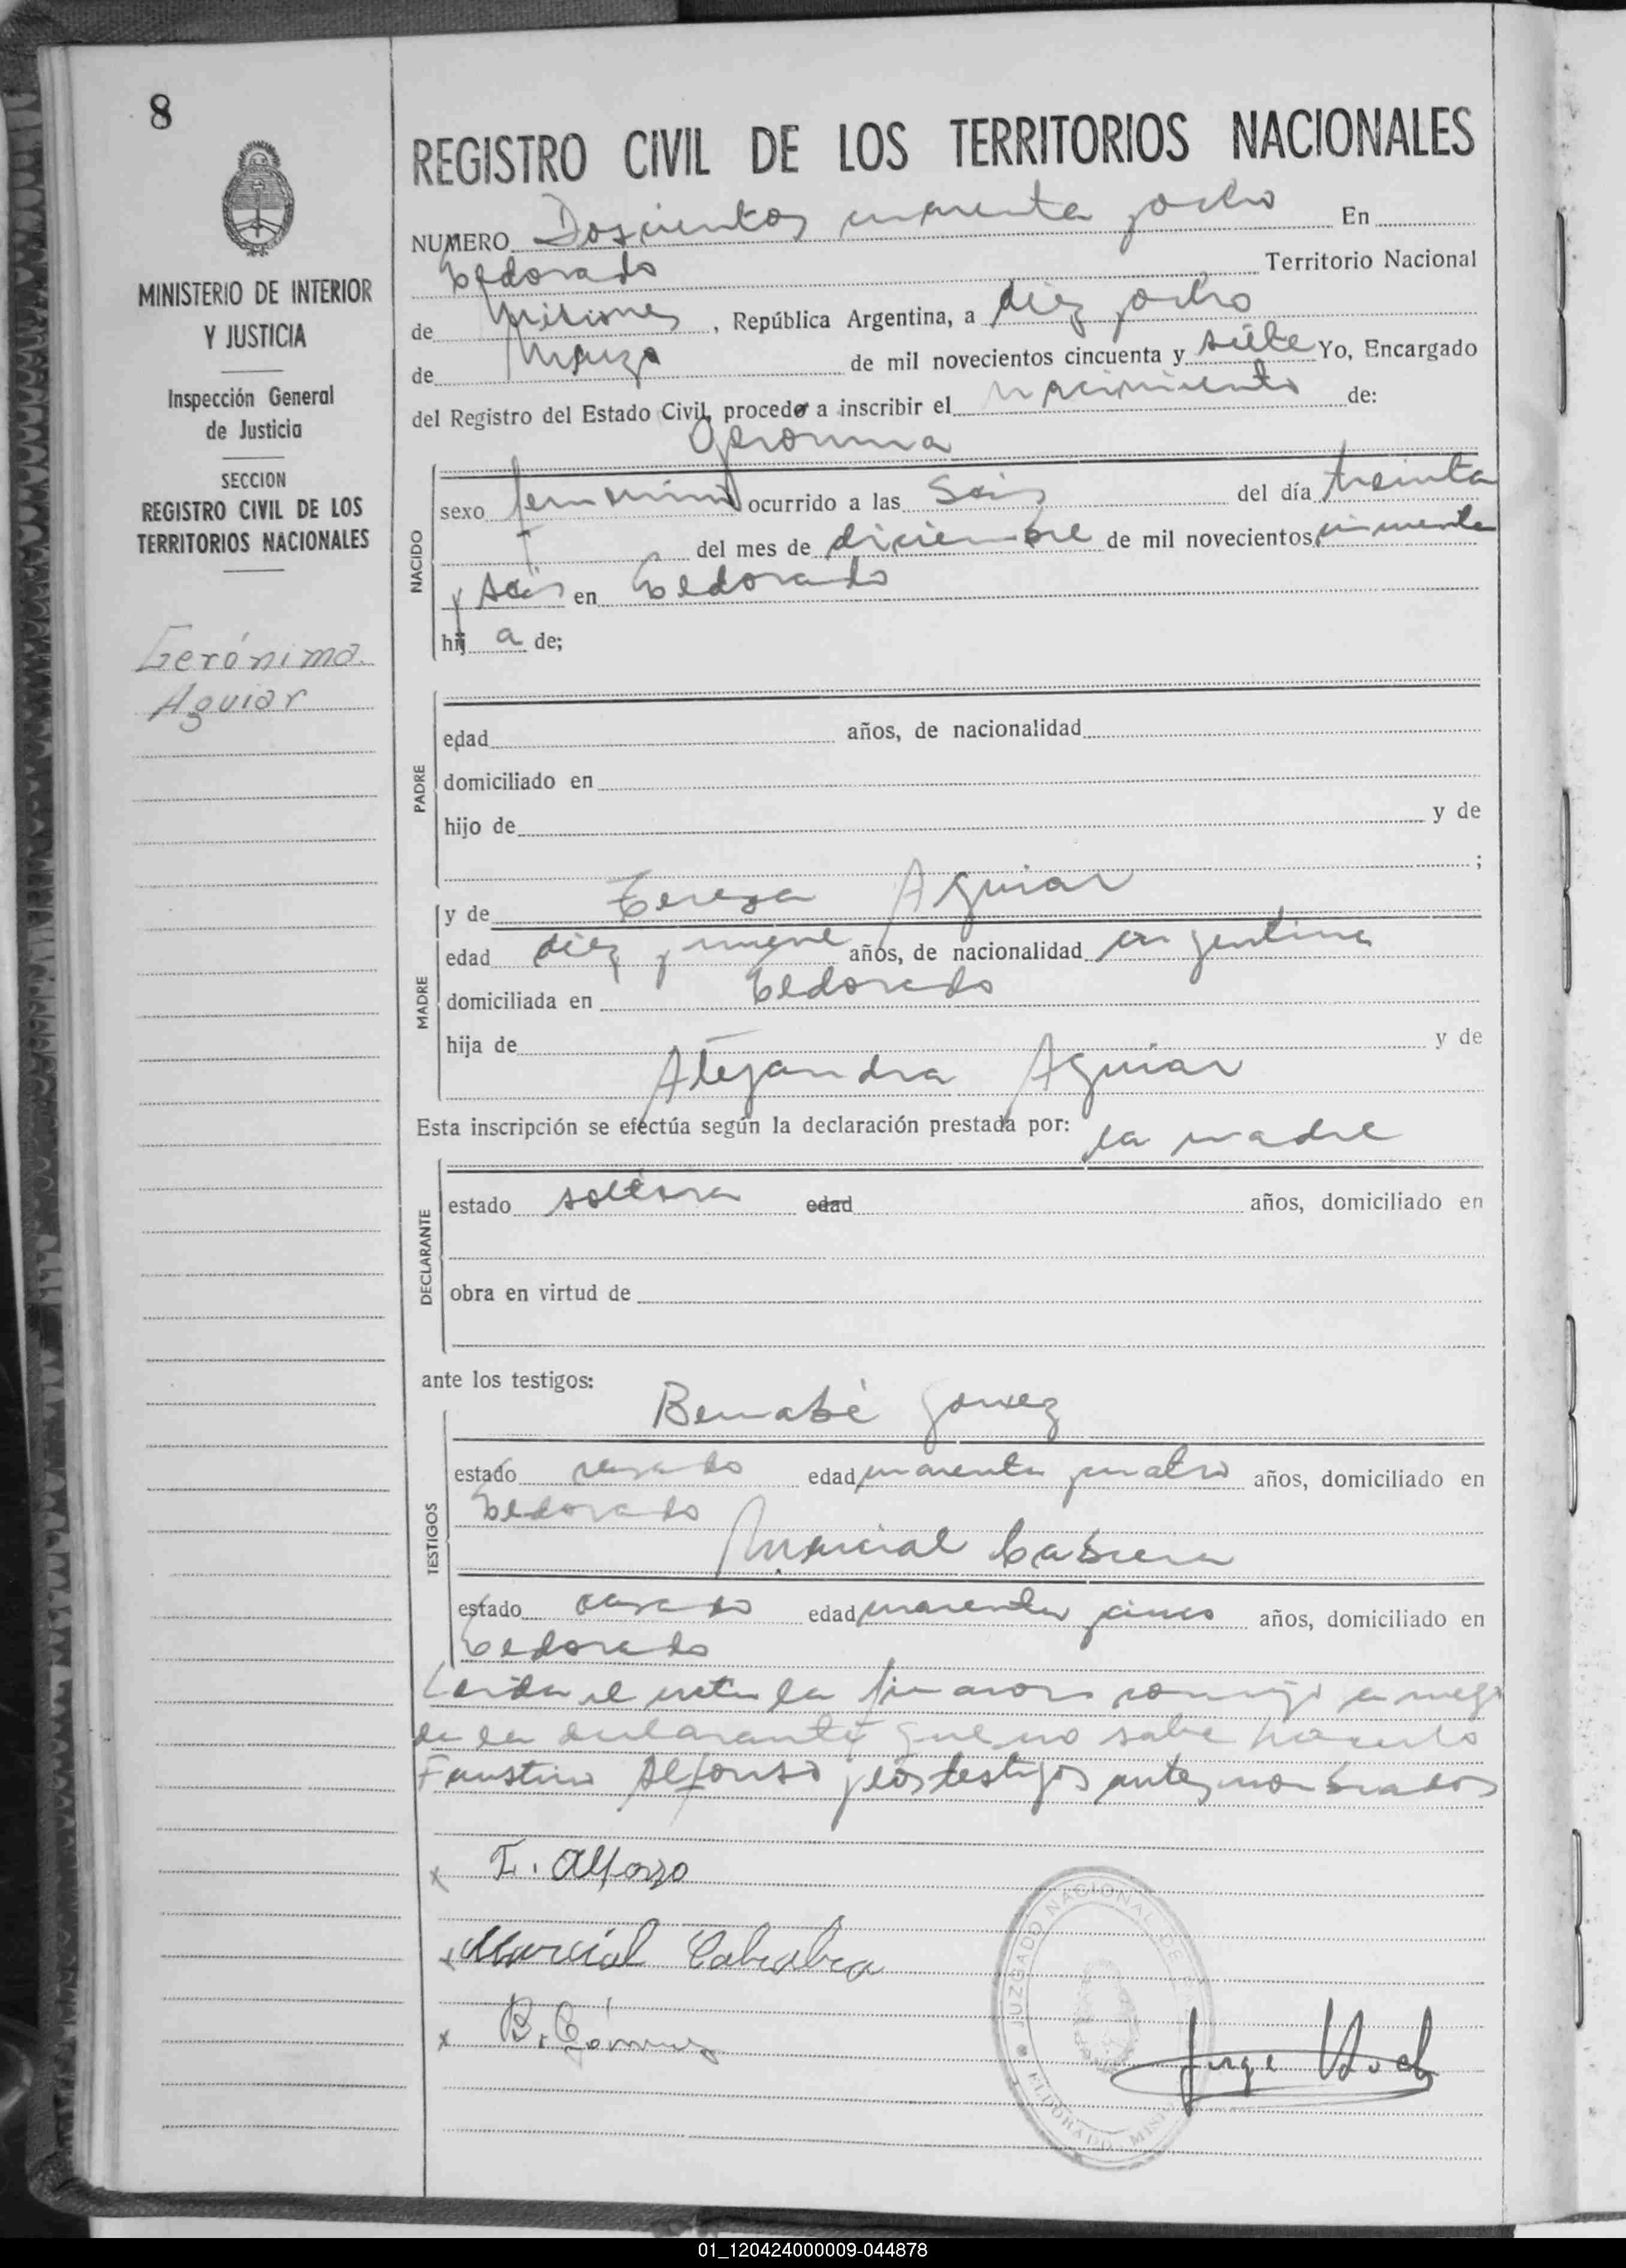 8
MINISTERIO DE INTERIOR
Y JUSTICIA
Inspección General
de Justicia
SECCION
REGISTRO CIVIL DE LOS
TERRITORIOS NACIONALES
Gerónima
Aguiar
REGISTRO CIVIL DE LOS TERRITORIOS NACIONALES
NUMERO Doscientos cuarenta y ocho En
Eldorado Territorio Nacional
de Misiones, República Argentina, a diez y ocho
de Marzo de mil novecientos cincuenta y siete Yo, Encargado
del Registro del Estado Civil, procedo a inscribir el nacimiento de:
Geronima
NACIDO
sexo femenino ocurrido a las Seis del día treinta
del mes de diciembre de mil novecientos cincuenta
y seis en Eldorado
hij a de;
PADRE
edad años, de nacionalidad
domiciliado en
hijo de y de
;
MADRE
y de Tereza Aguiar
edad diez y nueve años, de nacionalidad argentina
domiciliada en Eldorado
hija de y de
Alejandra Aguiar
Esta inscripción se efectúa según la declaración prestada por: la madre
DECLARANTE
estado soltera edad años, domiciliado en
obra en virtud de
ante los testigos:
TESTIGOS
Bernabé Gomez
estado casado edad cuarenta y cuatro años, domiciliado en
Eldorado
Marcial Cabrera
estado casado edad cuarenta y cinco años, domiciliado en
Eldorado
Leida el acta la firmaron conmigo a ruego
de la declarante que no sabe hacerlo
Faustino Alfonso y los testigos antes nombrados
x F. Alfonzo
x Marcial Cabrabra
x B. Gómez
JUZGADO NACIONAL DE PAZ
ELDORADO - MISIONES
Jorge
01_120424000009-044878